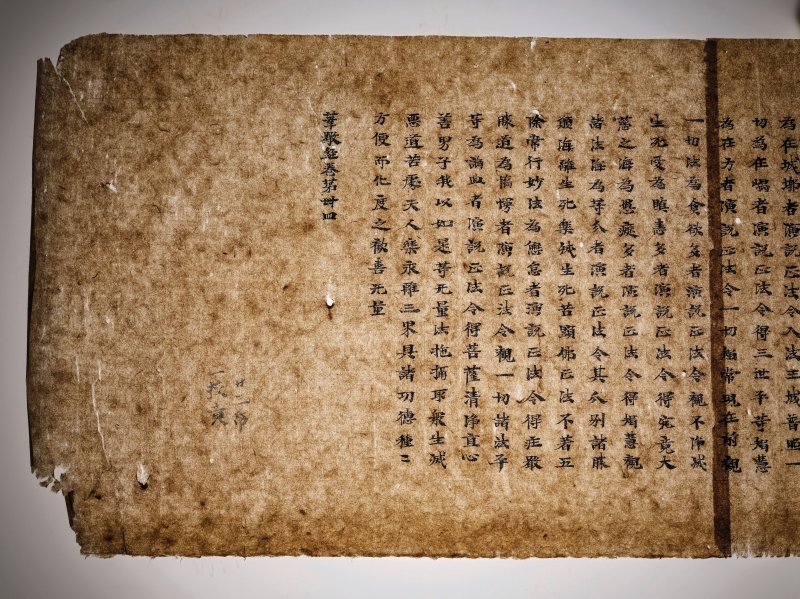 為在城墎者演說正法令入法王城普照一
切為在塢者演說正法令得三世平等明慧
為在方者演說正法令一切智常現在前觀
一切法為貪欲多者演說正法令觀不淨滅
生死愛為瞋恚多者演說正法令得究竟大
慈之海為愚癡多者演說正法令得明慧觀
諸法海為等分者演說正法令其分別諸勝
願海離生死樂生死苦願佛正法不著五
陰常行妙法為懈怠者演說正法令得莊嚴
勝道為憍慢者演說正法令觀一切諸法平
等為諂曲者演說正法令得菩薩清淨直心
善男子我以如是等无量法施攝取眾生滅
惡道苦處天人樂永離三界具諸功德種〻
方便而化度之歡喜无量
華嚴經卷第卌四
廿一帋
一校竟